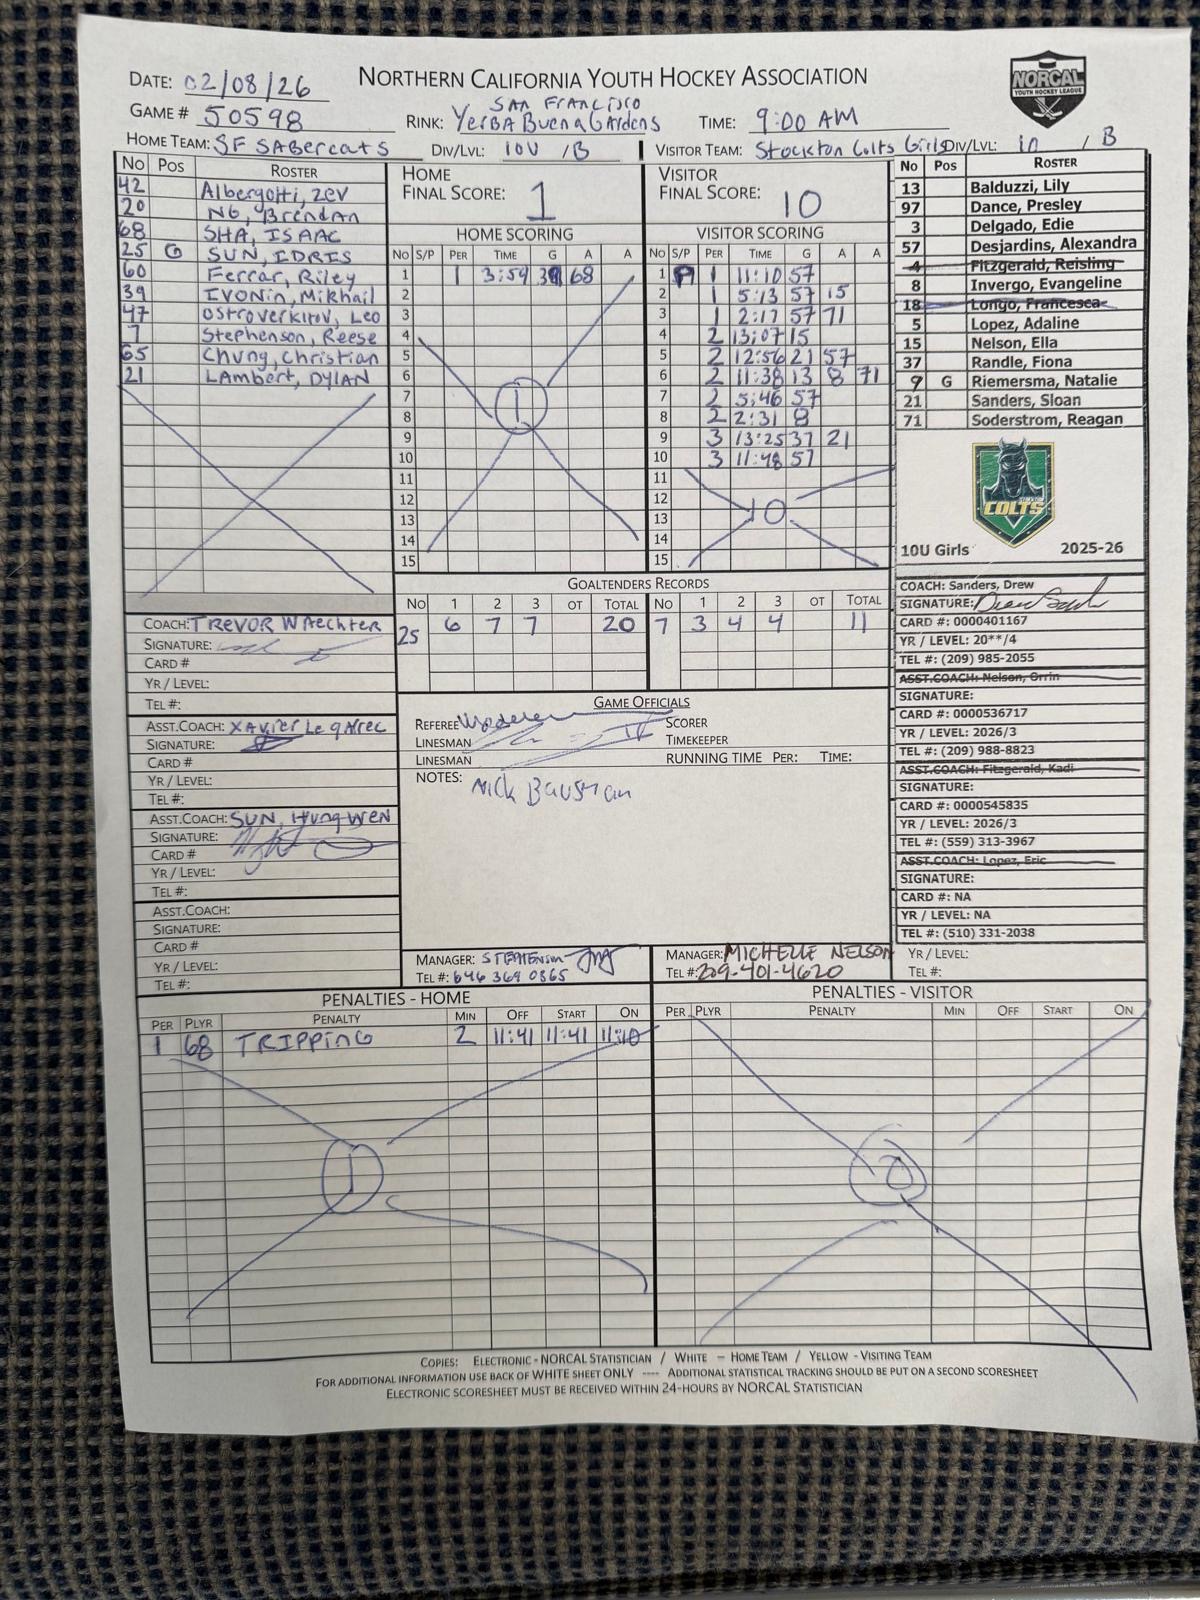 DATE: 02/08/26
NORTHERN CALIFORNIA YOUTH HOCKEY ASSOCIATION
NORCAL
YOUTH HOCKEY LEAGUE
GAME # 50598
RINK: SAN FRANCISCO
YERBA BUENA GARDENS
TIME: 9:00 AM
HOME TEAM: SF SABERCATS
DIV/LVL: 10U /B
VISITOR TEAM: Stockton Colts Girls
DIV/LVL: 10 / B
No Pos ROSTER
42 Albergotti, Zev
20 NG, Brendan
68 SHA, ISAAC
25 G SUN, IDRIS
60 Ferrar, Riley
39 IVONIN, Mikhail
47 Ostroverkhov, Leo
7 Stephenson, Reese
65 Chung, Christian
21 LAMBERT, DYLAN
HOME
FINAL SCORE: 1
HOME SCORING
NO S/P PER TIME G A A
1 1 3:59 39 68
2
3
4
5
6
7
8
9
10
11
12
13
14
15
1
VISITOR
FINAL SCORE: 10
VISITOR SCORING
NO S/P PER TIME G A A
1 P 1 11:10 57
2 1 5:13 57 15
3 1 2:17 57 71
4 2 13:07 15
5 2 12:56 21 57
6 2 11:38 13 8 71
7 2 5:46 57
8 2 2:31 8
9 3 13:25 37 21
10 3 11:48 57
11
12
13
14
15
10
No Pos ROSTER
13 Balduzzi, Lily
97 Dance, Presley
3 Delgado, Edie
57 Desjardins, Alexandra
4 Fitzgerald, Reisling
8 Invergo, Evangeline
18 Longo, Francesca
5 Lopez, Adaline
15 Nelson, Ella
37 Randle, Fiona
9 G Riemersma, Natalie
21 Sanders, Sloan
71 Soderstrom, Reagan
COLTS
10U Girls 2025-26
GOALTENDERS RECORDS
NO 1 2 3 OT TOTAL
25 6 7 7 20
NO 1 2 3 OT TOTAL
7 3 4 4 11
COACH: TREVOR WAECHTER
SIGNATURE:
CARD #
YR / LEVEL:
TEL #:
ASST.COACH: XAVIER LE GARREC
SIGNATURE:
CARD #
YR / LEVEL:
TEL #:
ASST.COACH: SUN, HUNG WEN
SIGNATURE:
CARD #
YR / LEVEL:
TEL #:
ASST.COACH:
SIGNATURE:
CARD #
YR / LEVEL:
TEL #:
GAME OFFICIALS
REFEREE
LINESMAN
LINESMAN
SCORER
TIMEKEEPER
RUNNING TIME PER: TIME:
NOTES: Nick Bausman
MANAGER: STEPHENSON
TEL #: 646 369 0365
MANAGER: MICHELLE NELSON
TEL #: 209-401-4620
COACH: Sanders, Drew
SIGNATURE:
CARD #: 0000401167
YR / LEVEL: 20**/4
TEL #: (209) 985-2055
ASST.COACH: Nelson, Orrin
SIGNATURE:
CARD #: 0000536717
YR / LEVEL: 2026/3
TEL #: (209) 988-8823
ASST.COACH: Fitzgerald, Kadi
SIGNATURE:
CARD #: 0000545835
YR / LEVEL: 2026/3
TEL #: (559) 313-3967
ASST.COACH: Lopez, Eric
SIGNATURE:
CARD #: NA
YR / LEVEL: NA
TEL #: (510) 331-2038
YR / LEVEL:
TEL #:
PENALTIES - HOME
PER PLYR PENALTY MIN OFF START ON
1 68 TRIPPING 2 11:41 11:41 11:10
1
PENALTIES - VISITOR
PER PLYR PENALTY MIN OFF START ON
0
COPIES: ELECTRONIC - NORCAL STATISTICIAN / WHITE – HOME TEAM / YELLOW - VISITING TEAM
FOR ADDITIONAL INFORMATION USE BACK OF WHITE SHEET ONLY ---- ADDITIONAL STATISTICAL TRACKING SHOULD BE PUT ON A SECOND SCORESHEET
ELECTRONIC SCORESHEET MUST BE RECEIVED WITHIN 24-HOURS BY NORCAL STATISTICIAN